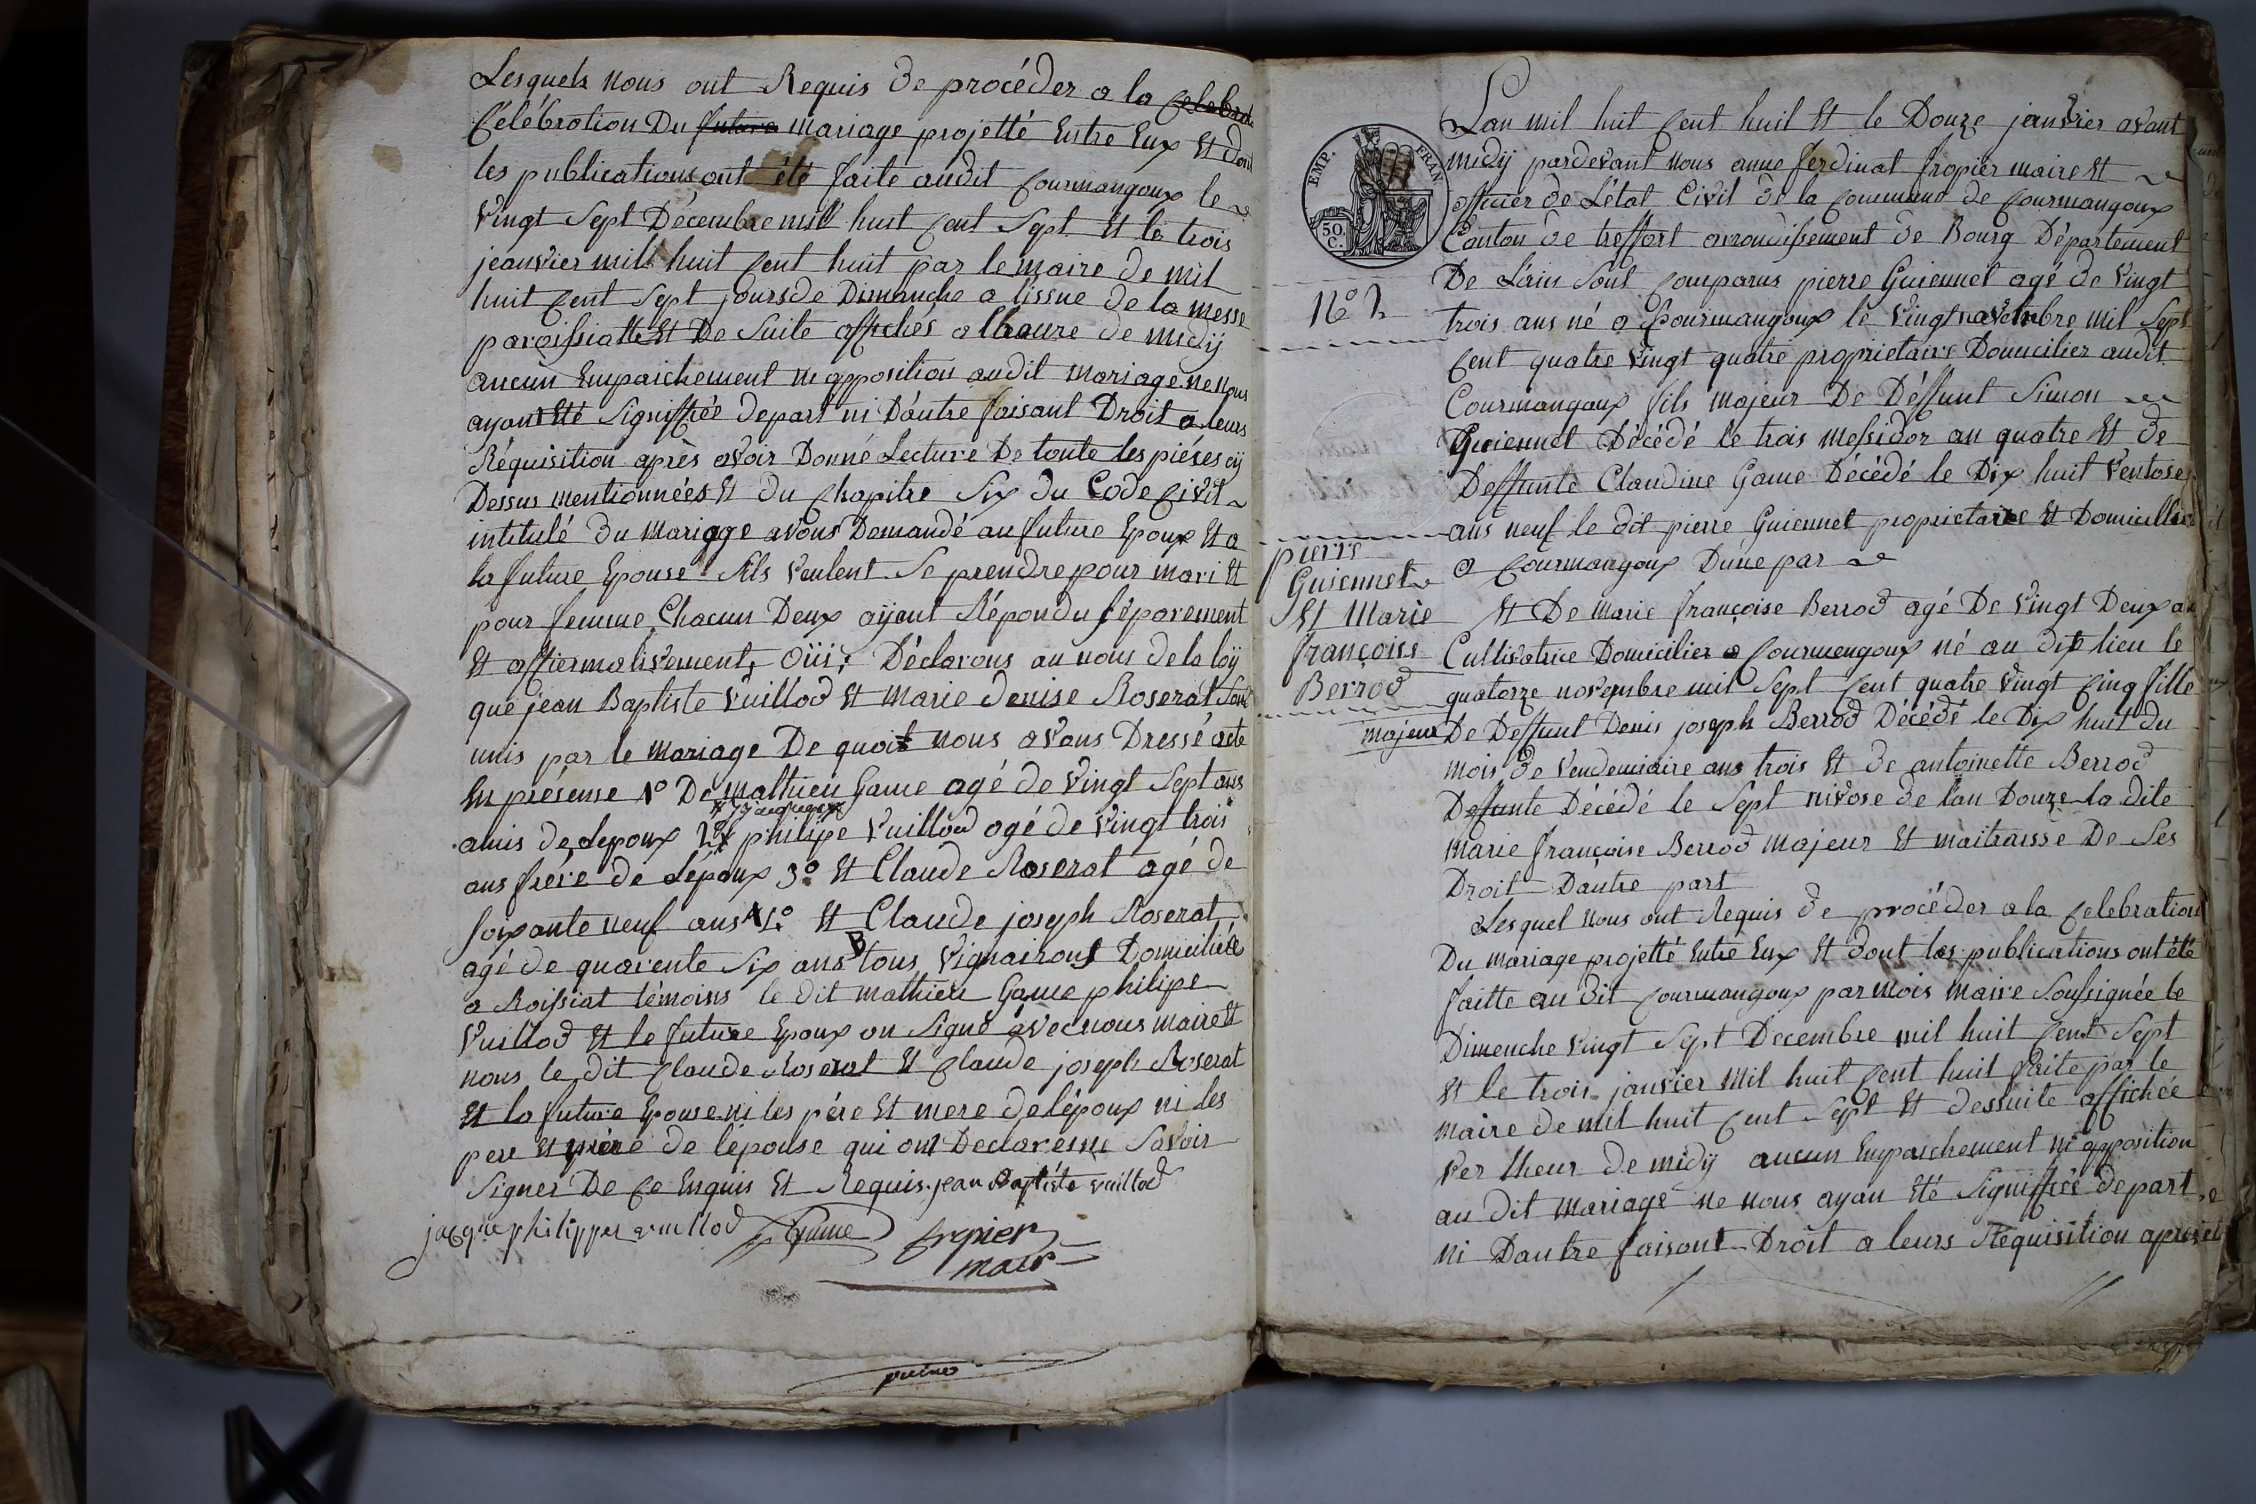 Lesquels nous ont Requis de procéder a la Celebrat
Célébration Du future mariage projetté Entre Eux Et dont
les publications ont été faite audit Courmangoux le
Vingt Sept Décembre mill huit Cent Sept Et le trois
jeanvier mill huit Cent huit par le maire de mil
huit Cent Sept jours de Dimanche a lissue de la messe
paroissialle Et De Suite affichés a lheaure de midÿ
aucun Empaichement ni opposition audit mariage ne nous
ayant Eté Signiffiée depart ni Dautre faisant Droit a leurs
Réquisition après avoir Donné Lecture De toute les piéses cÿ
Dessus mentionnées Et du Chapitre Six du Code Civil
intitulé du Mariage avons Demandé au future Epoux Et a
la future Epouse Sils veulent Se prendre pour mari Et
pour femme Chacun Deux aÿant Répondu séparement
Et affiermativement, Oüi, Déclarons au nom de la loÿ
que jean Baptiste Vuillod Et Marie denise Roserat Sont
unis par le mariage De quoit nous avons Dressé acte
En présense 1º De mathieu Game agé de Vingt Sept ans
jacques
amis de Lepoux 2º philipe Vuillod agé de Vingt trois
ans frére de Lépoux 3º Et Claude Roserat agé de
Soixante neuf ans 4º Et Claude joseph Roserat
agé de quarente Six ans tous Vignairons Domiciliés
a Roissiat témoins le dit mathieu Game philipe
Vuillod Et le future Epoux on Signé avec nous maire Et
nous le dit Claude Roserat Et Claude joseph Roserat
Et la future Epouse ni les pére Et mere de lépoux ni les
pere Et mére de lépouse qui ont Declarés ne Savoir
Signer De Ce Enquis Et Requis. jean Baptiste vuillod
jacque philippe vuillod Game fropier
mair
EMP. FRAN.
50.
C.
Nº 2
pierre
Guiennet
Et Marie
françoise
Berrod
majeur
Lan mil huit Cent huit Et le Douze janvier avant
midÿ pardevant nous anne ferdinat fropier maire Et
officier de Létat Civil de la Commune de Courmangoux
Canton de treffort arrondissement de Bourg Département
De Lain Sont Comparus pierre Guiennet agé de Vingt
trois ans né a Courmangoux le Vingt navembre mil Sept
Cent quatre Vingt quatre proprietaire Domicilier audit
Courmangoux fils majeur De Déffunt Simon
Guiennet Décédé le trois messidor an quatre Et de
Deffunte Claudine Game Décédé le Dix huit Ventose
ans neuf le dit pierre Guiennet proprietaire Et Domicillier
a Courmangoux Dune par
Et De Marie françoise Berrod agé De Vingt Deux an
Cultivatrice Domicilier a Courmengoux né au dit lieu le
quatorze novembre mil Sept Cent quatre Vingt Cinq fille
De Deffunt Denis joseph Berrod Décédé le Dix huit du
mois de Vendemiaire ans trois Et de antoinette Berrod
Deffunte Décédé le Sept nivose de lan Douze la dite
Marie françoise Berrod majeur Et maitraisse De Ses
Droit Dautre part
Lesquel nous ont Requis de procéder a la Celebration
Du mariage projetté Entre Eux Et dont les publications ont été
faitte au dit Courmangoux par mois maire Soussignée le
Dimenche Vingt Sept Decembre mil huit Cent Sept
Et le trois janvier Mil huit Cent huit faite par le
maire de mil huit Cent Sept Et dessuite affichée
Ver lheur de midÿ aucun Empaichement ni opposition
au dit mariage ne nous ayan Eté Signiffiée depart
ni Dautre faisant Droit a leurs Réquisition apres